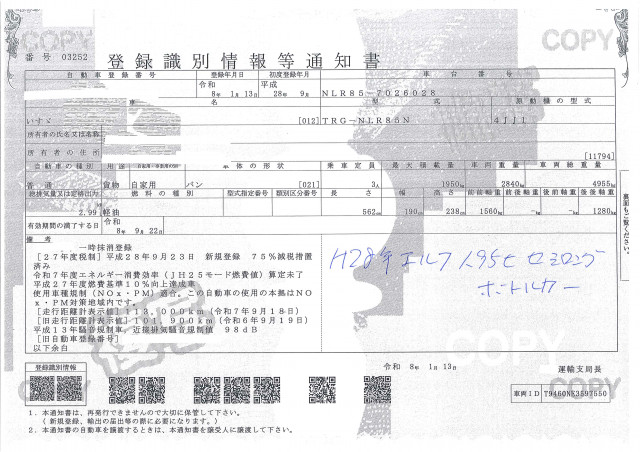 COPY
COPY
番号 03252
登録識別情報等通知書
自動車登録番号
登録年月日
初度登録年月
車台番号
令和
8年 1月 13日
平成
28年 9月
NLR85-7026028
車名
型式
原動機の型式
いすゞ
[012]
TRG-NLR85N
4JJ1
所有者の氏名又は名称
所有者の住所
[11794]
自動車の種別
用途
自家用・事業用の別
車体の形状
乗車定員
最大積載量
車両重量
車両総重量
普通
貨物
自家用
バン
[021]
3人
1950kg
2840kg
4955kg
総排気量又は定格出力
燃料の種別
型式指定番号
類別区分番号
長さ
幅
高さ
前前軸重
前後軸重
後前軸重
後後軸重
2.99
軽油
562cm
190cm
238cm
1560kg
-kg
-kg
1280kg
有効期間の満了する日
令和
8年 9月 22日
備考
一時抹消登録
[27年度税制]平成28年9月23日 新規登録 75%減税措置
済み
令和7年度エネルギー消費効率(JH25モード燃費値)算定未了
平成27年度燃費基準10%向上達成車
使用車種規制(NOx・PM)適合。この自動車の使用の本拠はNO
x・PM対策地域内です。
[走行距離計表示値]113,000km(令和7年9月18日)
[旧走行距離計表示値]101,900km(令和6年9月19日)
平成13年騒音規制車、近接排気騒音規制値 98dB
[旧自動車登録番号]
以下余白
H28年 エルフ 1.95t セミロング
ボトルカー
COPY
COPY
裏面もご覧ください。
令和 8年 1月 13日
運輸支局長
登録識別情報
車両ID
T9460NK3S97550
1．本通知書は、再発行できませんので大切に保管して下さい。
(新規登録、輸出の届出等の際に必要になります。)
2．本通知書の自動車を譲渡するときは、本通知書を譲受人に譲渡して下さい。